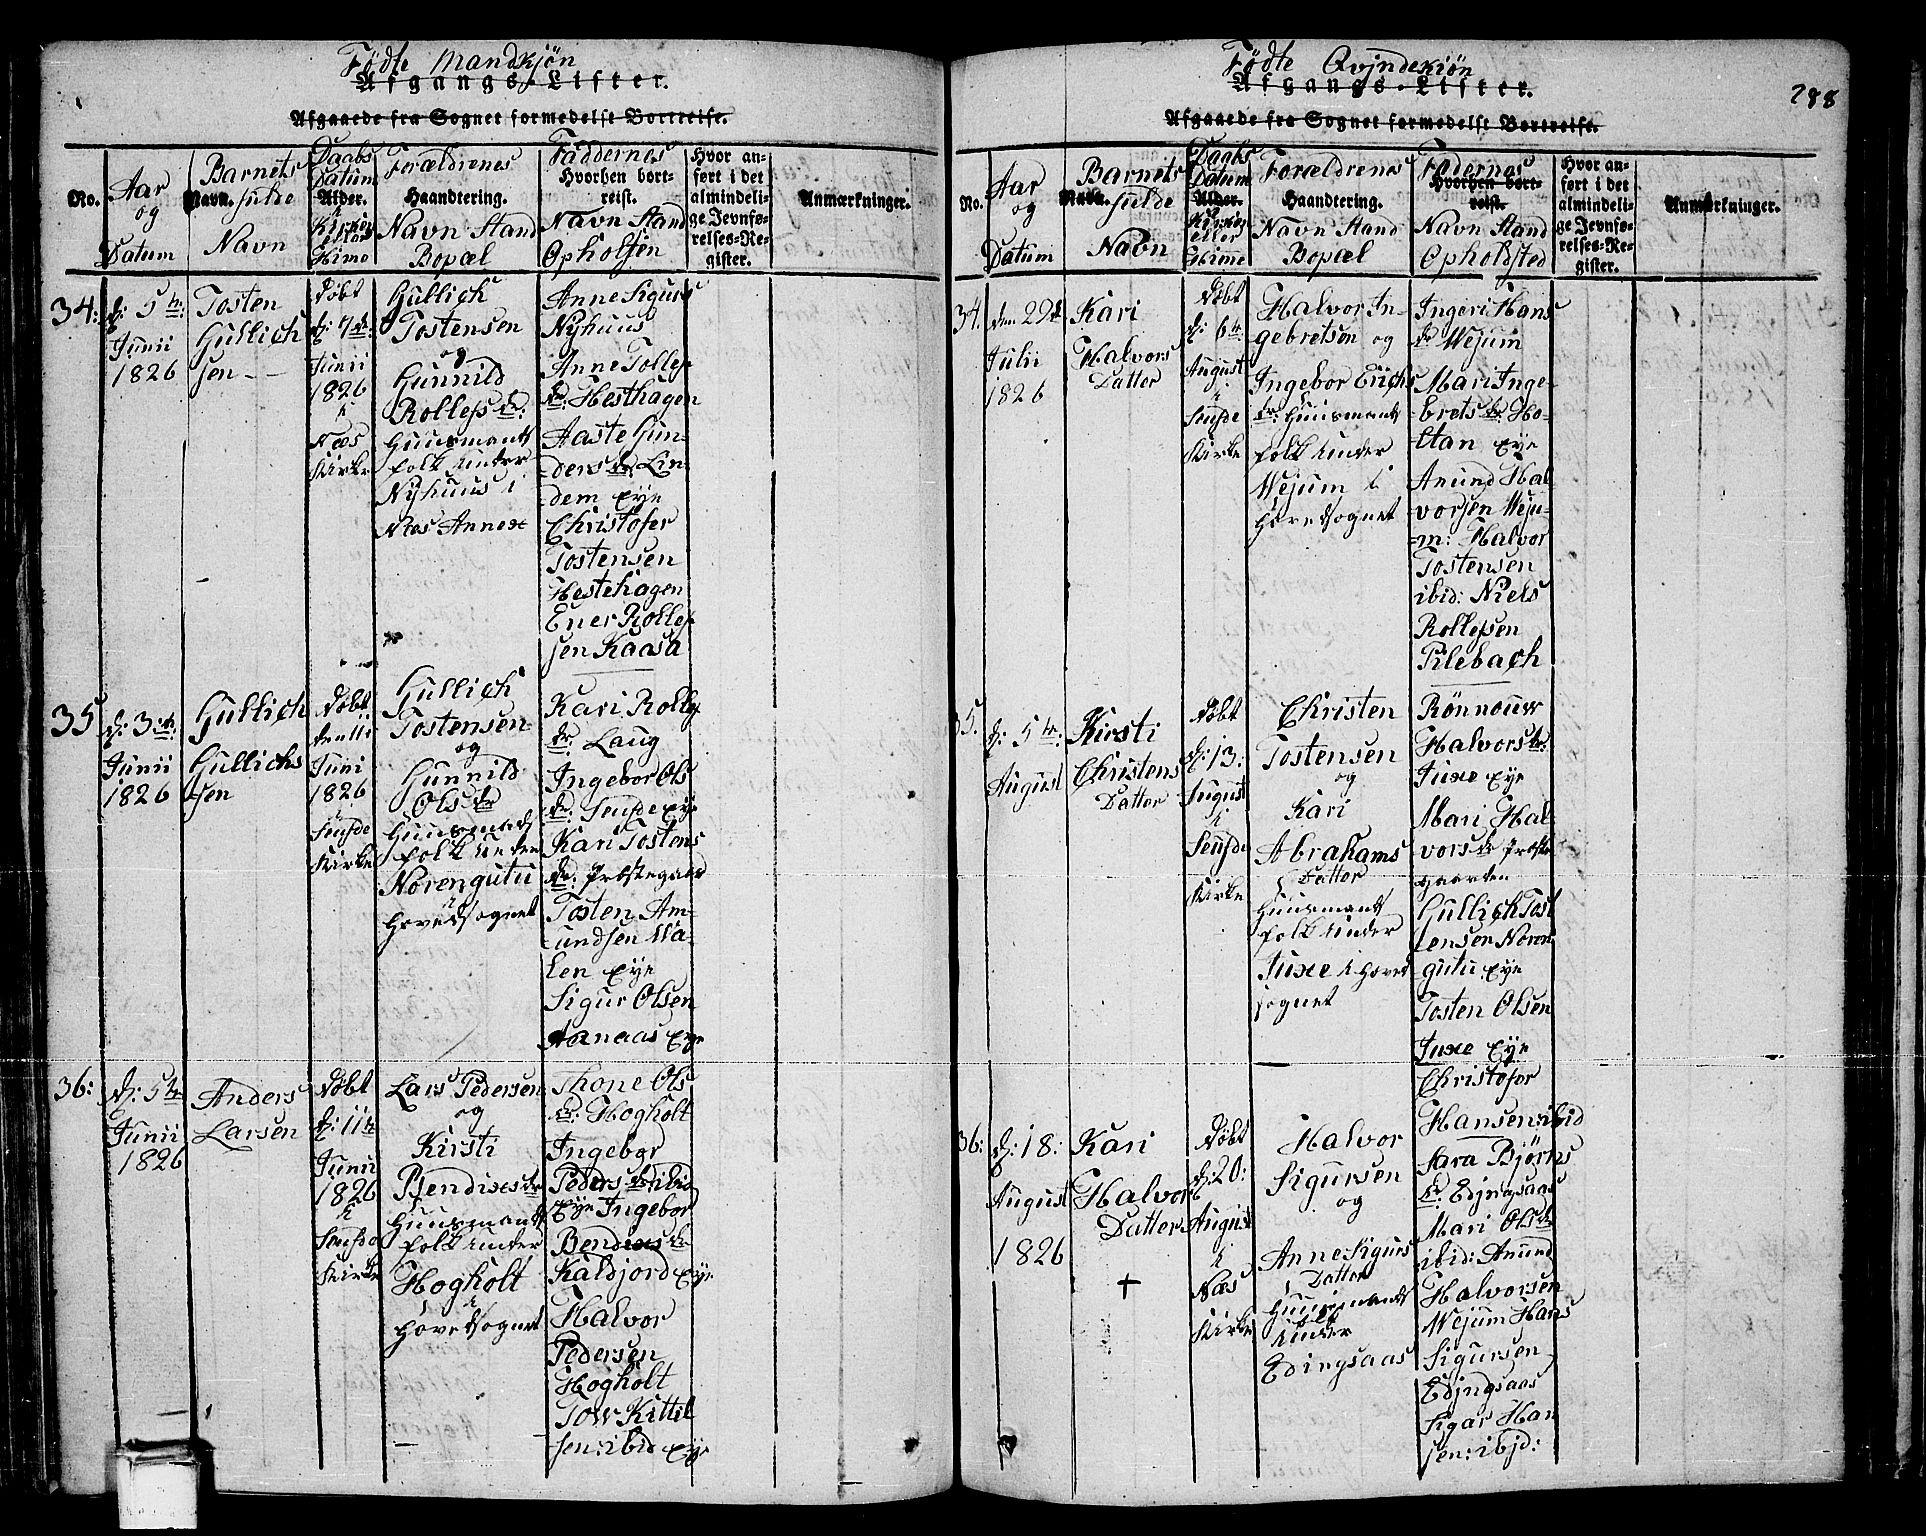 Födte Mandkjön
Afgangs-Lister.
Afgaaede fra Sognet formedelst Bortreise.
No.
Aar
og
Datum
Barnets
Navn. fulde
Navn
Daabs
Datum
Alder.
i
Kirken
eller
Hime
Forældrenes
Haandtering.
Navn Stand
Bopæl
Faddernes
Hvorhen bort-
reist.
Navn Stand
Opholsen
Hvor an-
ført i det
almindeli-
ge Jevnfø-
relses-Re-
gister.
Anmærkninger.
34:
d: 5te:
Junii
1826
Tosten
Gullich
sen - -
Döbt
d: 7de:
Junii
1826
i
Næs
Kirke
Gullich
Tostensen
og
Gunnild
Rollefs dr:
Huusmands
folk under
Nyhuus i
Næs Annex
Anne Sigurs
Nyhuus
Anne Tollefs
dr: Hesthagen
Aaste Gun-
ders dr Lin-
dem Eye
Christofer
Tostensen
Hestehagen
Ener Rollef
sen Kaasa
35
d: 3de:
Junii
1826
Gullich
Gullichs
sen
Döbt
den 11
Juni
1826
i
Seufde
Kirke
Gullich
Tostensen
og
Gunnild
Ols dr
Huusmands
folk under
Norengutu
i
Hovedsognet
Kari Rollefs
dr: Laug
Ingebor Ols
dr: Seufde Eye
Kari Tostens
dr: Præstegaard
Tosten Am-
undsen Va-
len Eye
Sigur Olsen
Aarnaas Eye
36:
d: 5te
Junii
1826
Anders
Larsen
Döbt
d: 11te
Junii
1826
i
Seufde
Kirke
Lars Pedersen
og
Kirsti
Bendixes dr
Huusmands
folk under
Hogholt
i
Hovedsognet
Thone Ols
dr: Hogholt
Ingebor
Peders dr ibid
Eye Ingebor
Bendixes dr
Kaldjord Eye
Halvor
Pedersen
Hogholt
Tow Kittil
sen: ibid Eye
Födte Qvindekiön
288
Afgangs-Lister.
Afgaaede fra Sognet formedelst Bortreise.
No.
Aar
og
Datum
Barnets
Navn. fulde
Navn
Daabs
Datum
Alder.
i
Kirken
eller
Hime
Forældrenes
Haandtering.
Navn Stand
Bopæl
Fadernes
Hvorhen bort-
reist.
Navn Stand
Opholdsted
Hvor an-
ført i det
almindeli-
ge Jevnfø-
relses-Re-
gister.
Anmærkninger.
34.
den 29de
Julii
1826
Kari
Halvors
Datter
Döbt
d: 6te
August
i
Seufde
Kirke
Halvor In-
gebretsen og
Ingebor Erichs
dr: Huusmands
folk under
Wejum i
Hovedsognet
Ingeri Hans
dr Wejum
Mari Inge-
brets dr: Ho-
ltan Eye
Anund Hal
vorsen Weju-
m: Halvor
Tostensen
ibid: Niels
Rollefsen
Pilebach
35.
d: 5te:
August
Kirsti
Christens
Datter
Döbt
d: 13:
August
i
Seufde
Kirke
Christen
Tostensen
og
Kari
Abrahams
Datter
Huusmands
folk under
Juxe i Hoved
sognet
Rönnouw
Halvors dr:
Juxe Eye
Mari Hal
vors dr Præste
gaarden
Gullich Tost
ensen Noren
gutu Eye
Tosten Olsen
Juxe Eye
Christofor
Hansen: ibid
36:
d: 18:
August
1826
Kari
Halvor
Datter
+
Döbt
d: 20:
August
i
Næs
Kirke
Halvor
Sigursen
og
Anne Sigurs
Datter
Huusmands
folk
under
Edingsaas
Sara Björns
dr: Edjngsaas
Mari Ols dr
ibid: Anund
Halvorsen
Wejum Hans
Sigursen
Edjngsaas
Sigar Han
sen: ibjd: